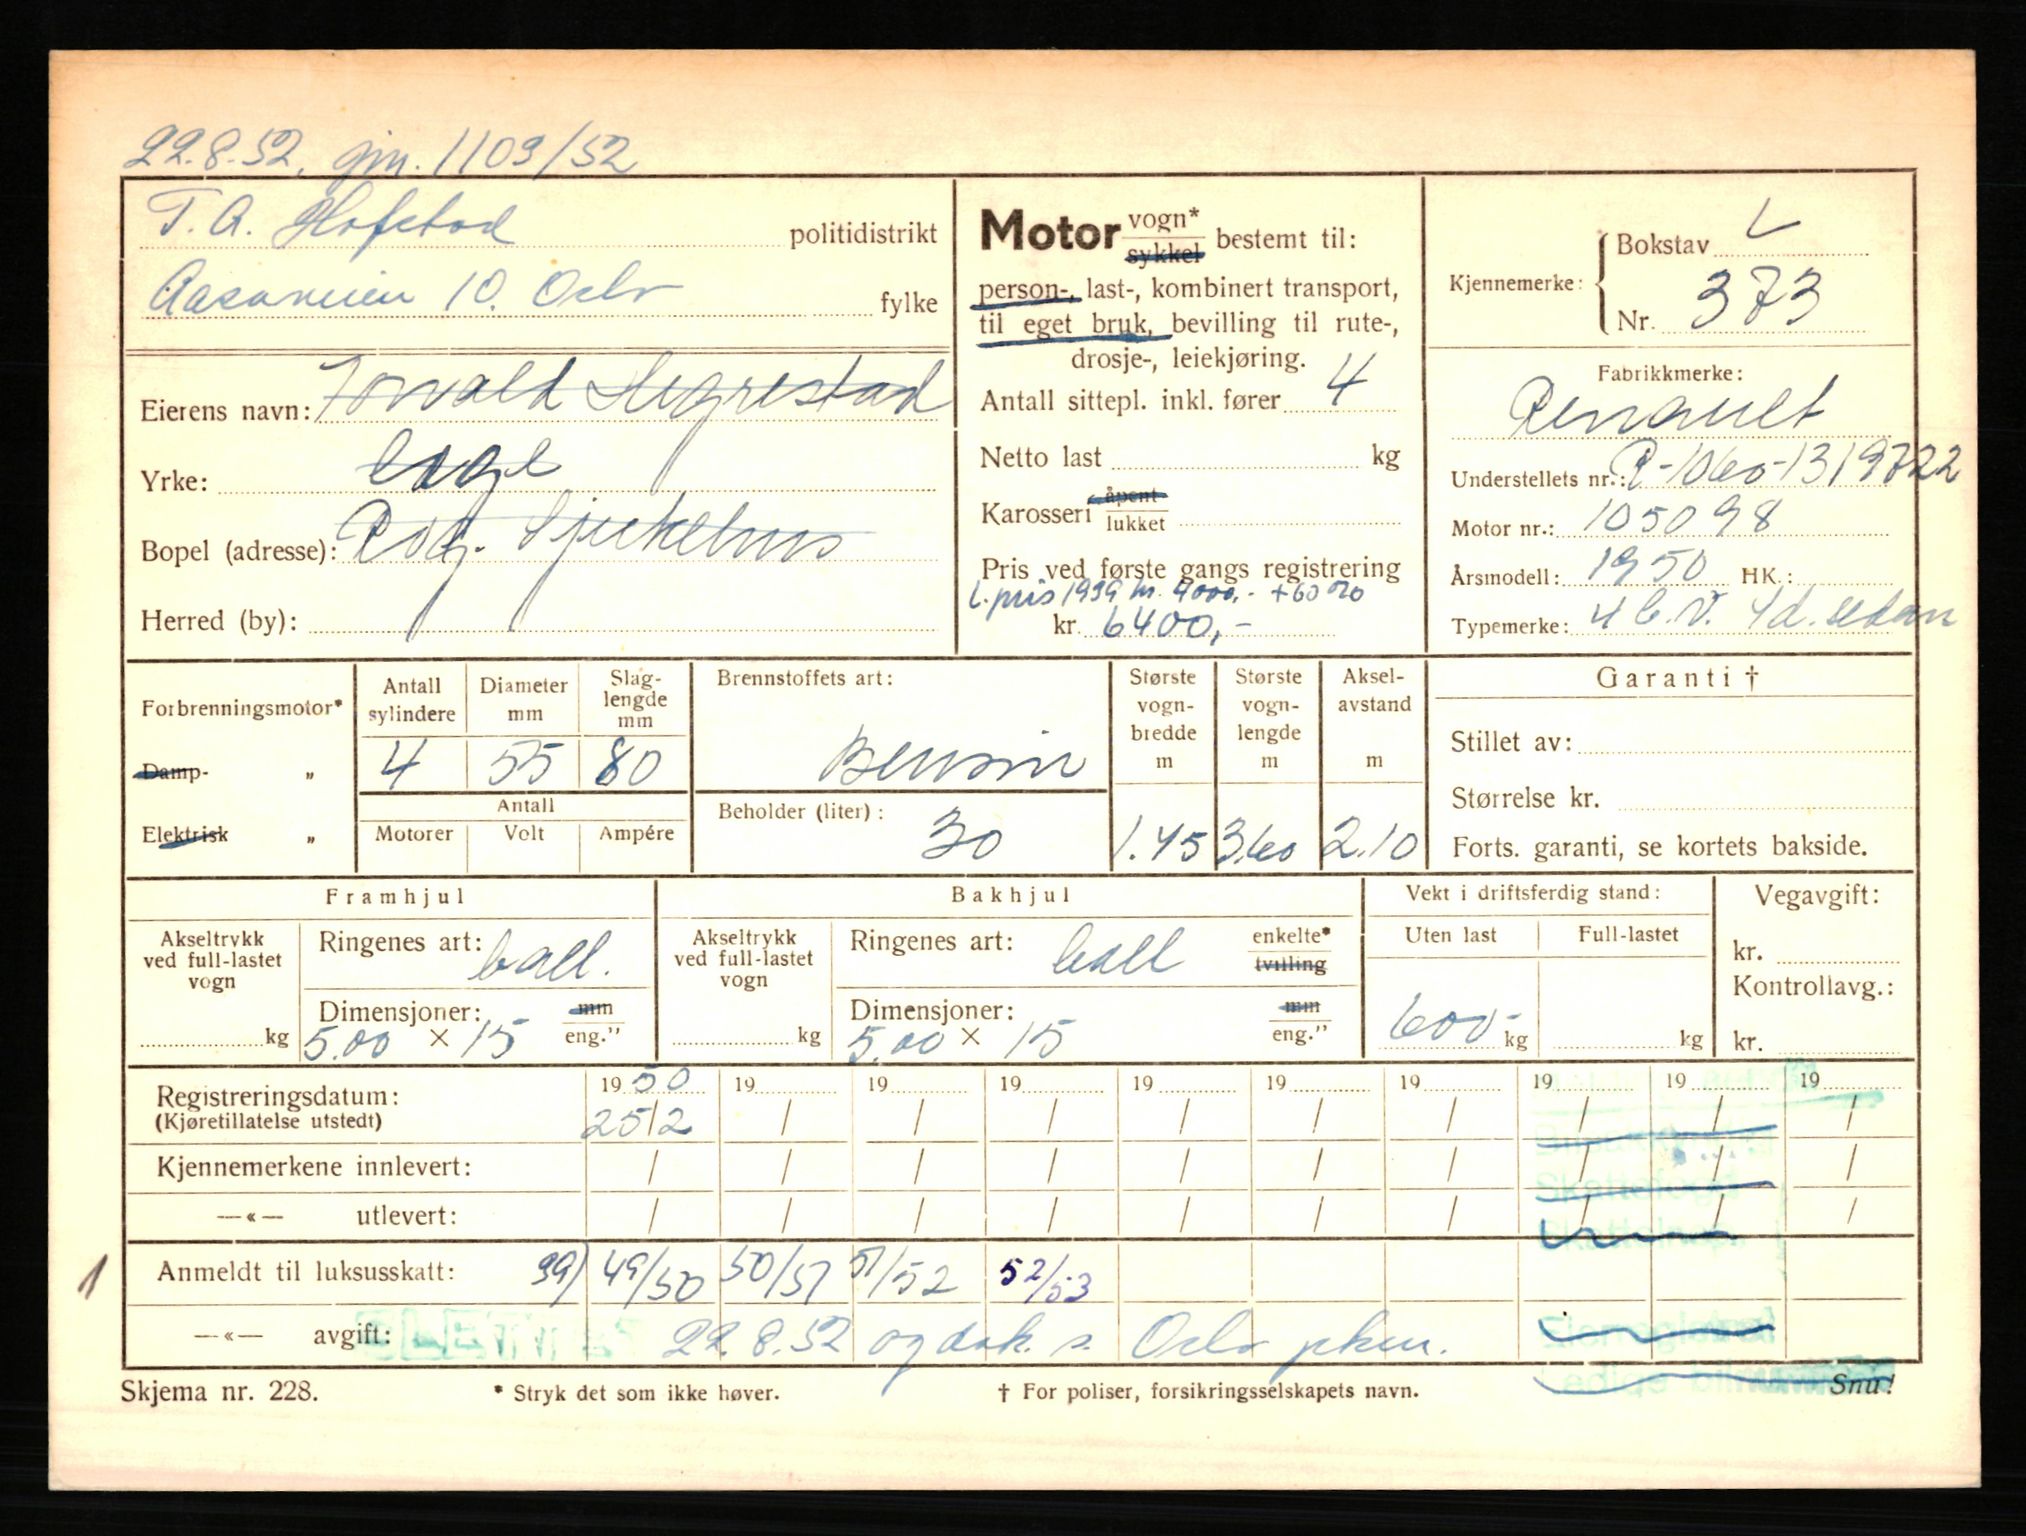 22.8.52. gjn. 1109/52
T. A. Hofstad politidistrikt
10. Oslo fylke
Eierens navn: Torvald Hegrestad
Yrke: lege
Bopel (adresse): Rog. Sjukehus
Herred (by):
Motor vogn* sykkel bestemt til:
person-, last-, kombinert transport,
til eget bruk, bevilling til rute-,
drosje-, leiekjøring.
Antall sittepl. inkl. fører 4
Netto last kg
Karosseri åpent lukket
Pris ved første gangs registrering
L.pris 1939 kr. 4000,- + 60%
kr. 6400,-
Kjennemerke: Bokstav L
Nr. 373
Fabrikkmerke:
Renault
Understellets nr.: R-1060-1319722
Motor nr.: 105098
Årsmodell: 1950 HK.:
Typemerke: 4 C.V. 4d. sedan
Forbrenningsmotor*
Damp- „
Elektrisk „
Antall sylindere 4
Diameter mm 55
Slaglengde mm 80
Antall
Motorer Volt Ampére
Brennstoffets art:
Bensin
Beholder (liter): 30
Største vognbredde m 1.45
Største vognlengde m 3.60
Akselavstand m 2.10
Garanti †
Stillet av:
Størrelse kr.
Forts. garanti, se kortets bakside.
Framhjul
Akseltrykk ved full-lastet vogn kg
Ringenes art: ball.
Dimensjoner: mm
5.00 × 15 eng.”
Bakhjul
Akseltrykk ved full-lastet vogn kg
Ringenes art: ball enkelte* tvilling
Dimensjoner: mm
5.00 × 15 eng.”
Vekt i driftsferdig stand:
Uten last Full-lastet
600- kg kg
Vegavgift:
kr.
Kontrollavg.:
kr.
Registreringsdatum: 1950 19 19 19 19 19 19 19 19 19
(Kjøretillatelse utstedt) 25/2 / / / / / / / / /
Kjennemerkene innlevert: / / / / / / / / / /
—«— utlevert: / / / / / / / / / /
1 Anmeldt til luksusskatt: 39) 49/50 50/51 51/52 52/53
—«— avgift: 22.8.52 og dok. s. Oslo pkm.
Skjema nr. 228. * Stryk det som ikke høver. † For poliser, forsikringsselskapets navn. Snu!